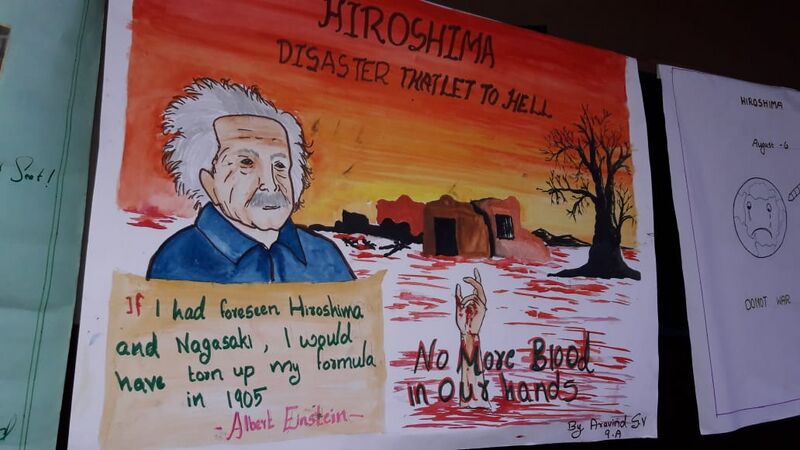 HIROSHIMA
DISASTER THAT LET TO HELL
If I had foreseen Hiroshima
and Nagasaki, I would
have torn up my formula
in 1905
- Albert Einstein -
No More Blood
in Our hands
By, Aravind S.V
9-A
HIROSHIMA
August - 6
DO NOT WAR